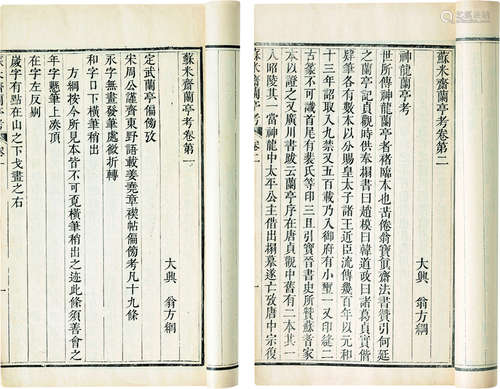 蘇米齋蘭亭考卷第二
大興 翁方綱
神龍蘭亭考
世所傳神龍蘭亭者褚臨本也岳倦翁寶真齋法書贊引何延
之蘭亭記貞觀時供奉搨書曰趙模曰韓道政曰諸葛貞寶偕
肄筆各有數本以分賜皇太子諸王近臣流傳幾百年以元和
十三年詔取入九禁又五百載乃入御府有小璽一又印縫二
古篆不可識首尾有裴氏等印三且引寶晉書史所贊蘇耆家
本以證之又廣川書跋云蘭亭序在唐貞觀中舊有二本其一
入昭陵其一當神龍中太平公主借出搨摹遂亡致唐中宗復
蘇米齋蘭亭考 卷二
蘇米齋蘭亭考卷第一
大興 翁方綱
定武蘭亭偏傍攷
宋周公謹齊東野語載姜堯章禊帖偏傍考凡十九條
永字無畫發筆處微折轉
和字口下橫筆稍出
方綱按今所見本皆不可覓橫筆稍出之迹此條須善會之
年字懸筆上湊頂
在字左反剔
歲字有點在山之下戈畫之右
蘇米齋蘭亭考 卷一